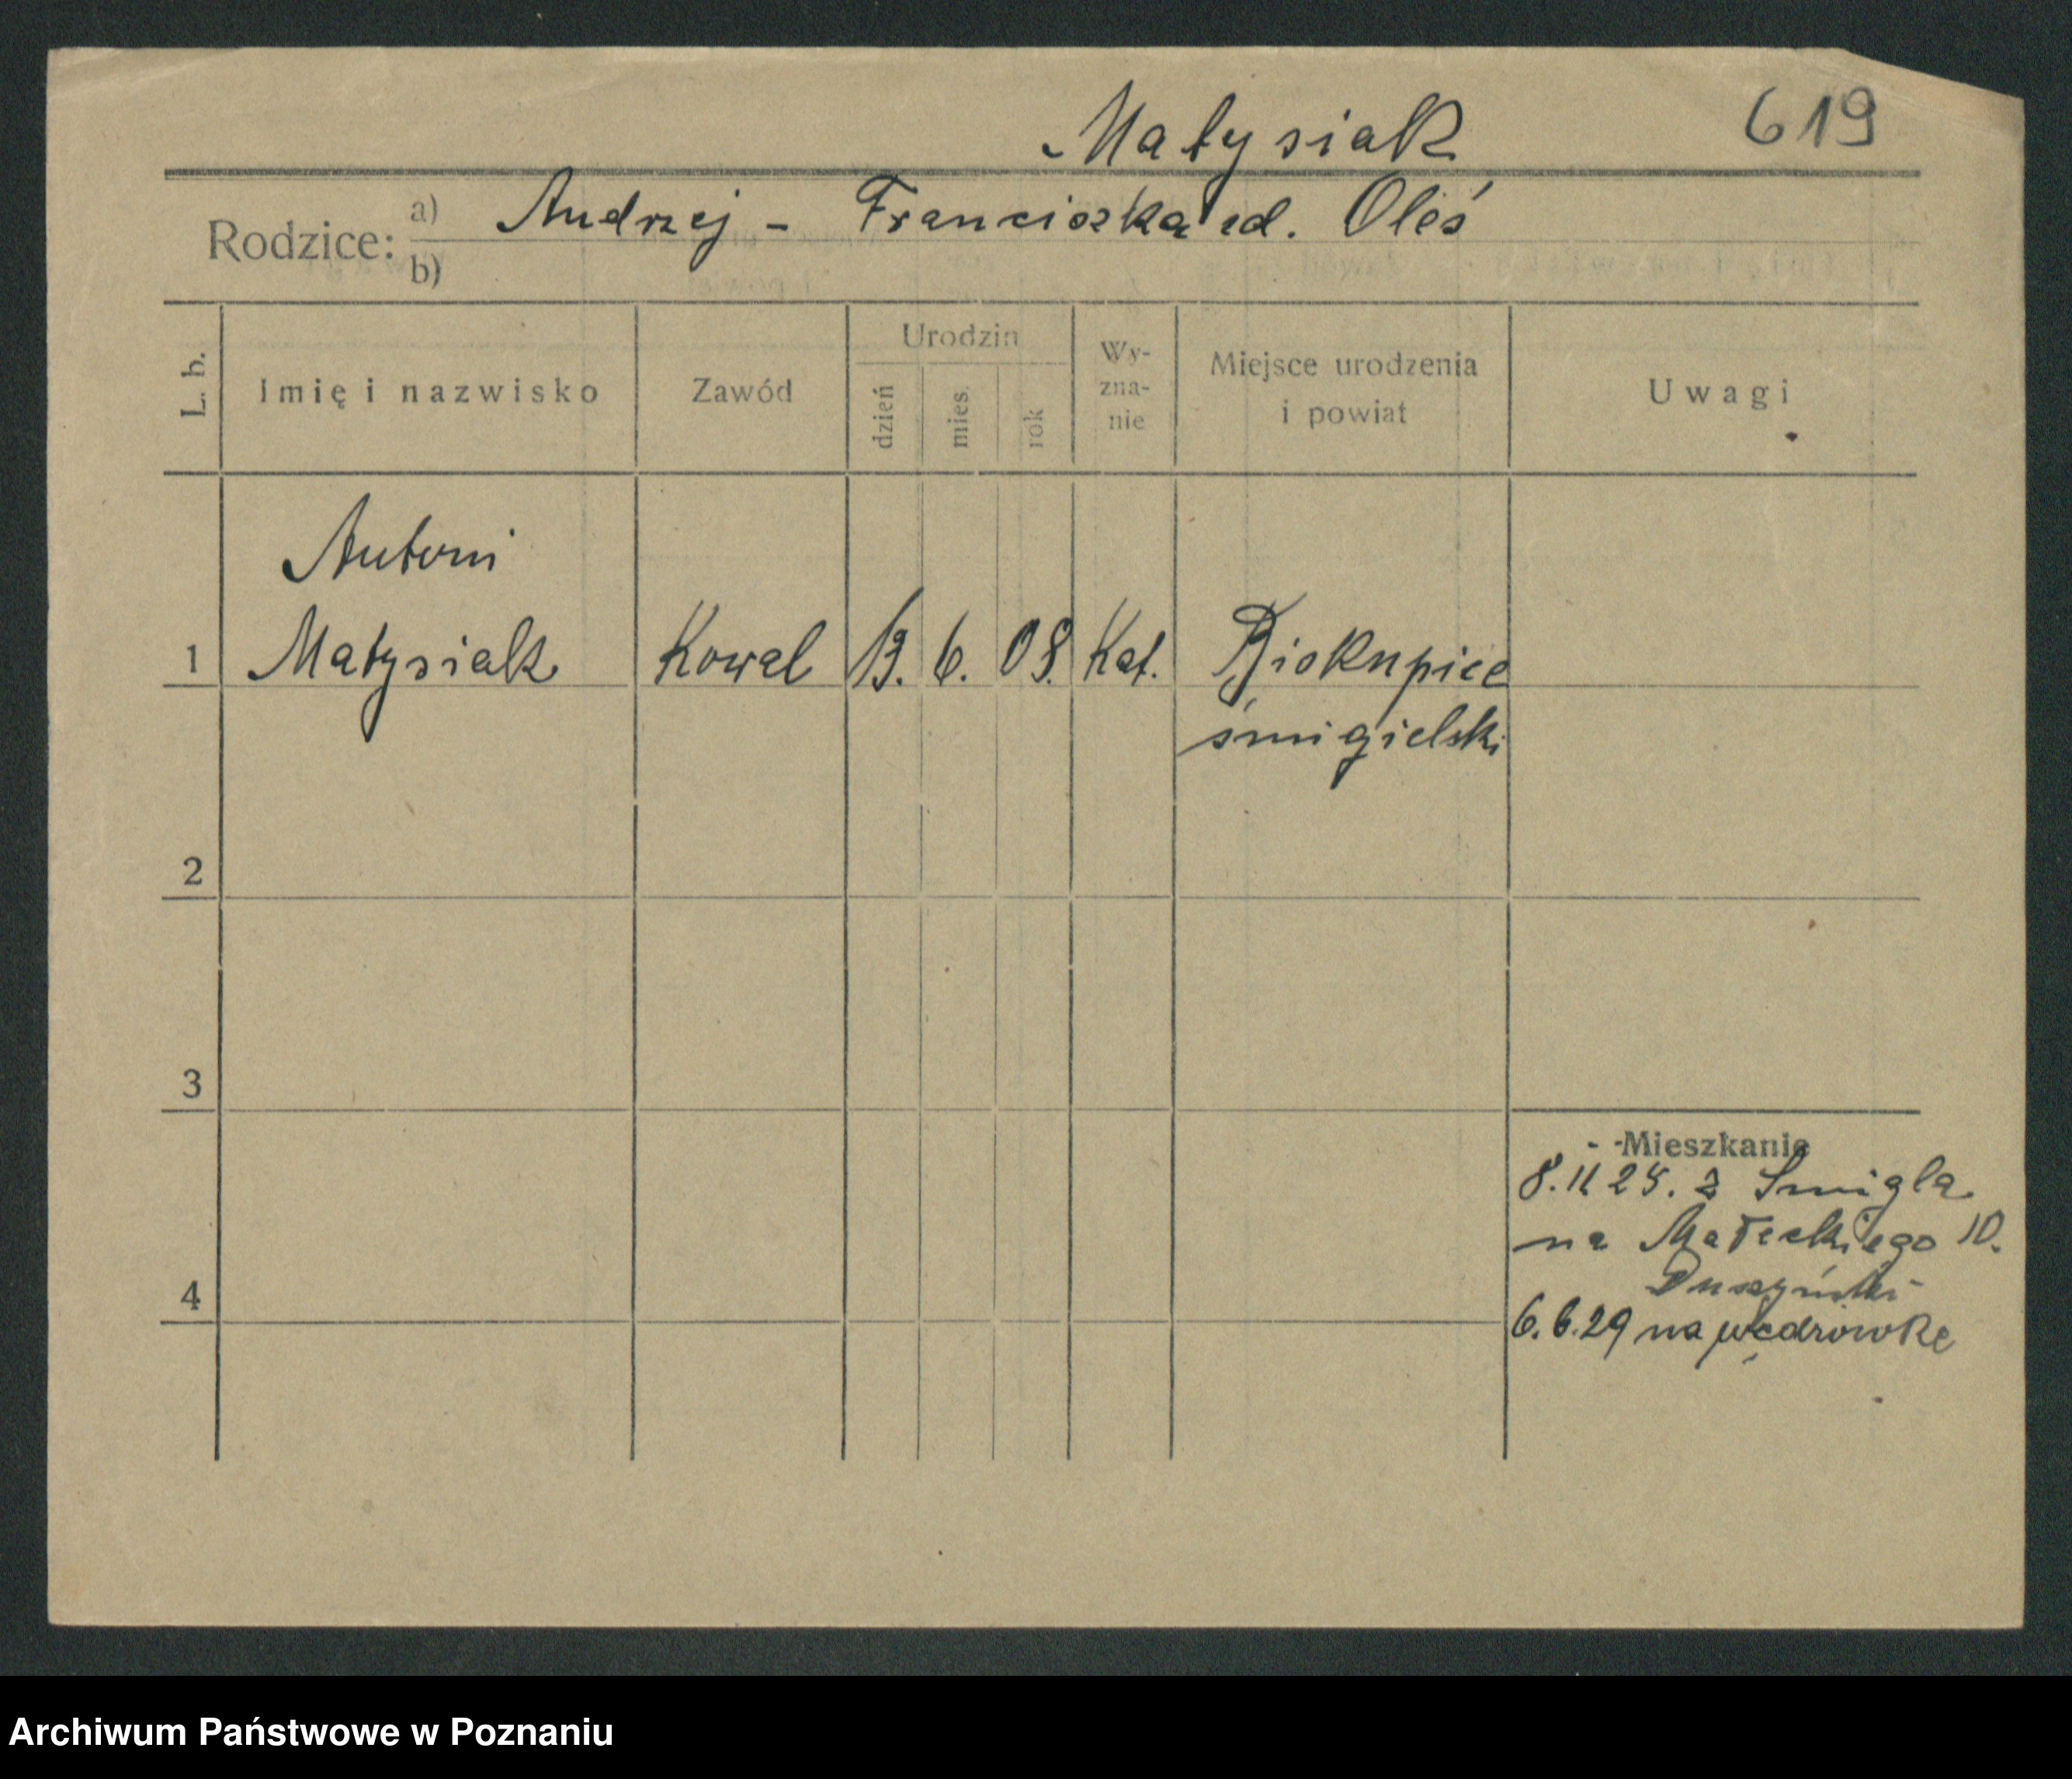 Matysiak 619
Rodzice: a) Andrzej - Franciszka zd. Oleś
b)
L. b. Imię i nazwisko Zawód Urodzin dzień mies. rok Wy-zna-nie Miejsce urodzenia i powiat Uwagi
Antoni
1 Matysiak Kowal 13. 6. 08. Kat. Biskupice
śmigielski
2
3
Mieszkanie
8. 11 25. z Smigla
na Małeckiego 10.
4 Duszyński
6. 6. 29 na wędrówkę
Archiwum Państwowe w Poznaniu